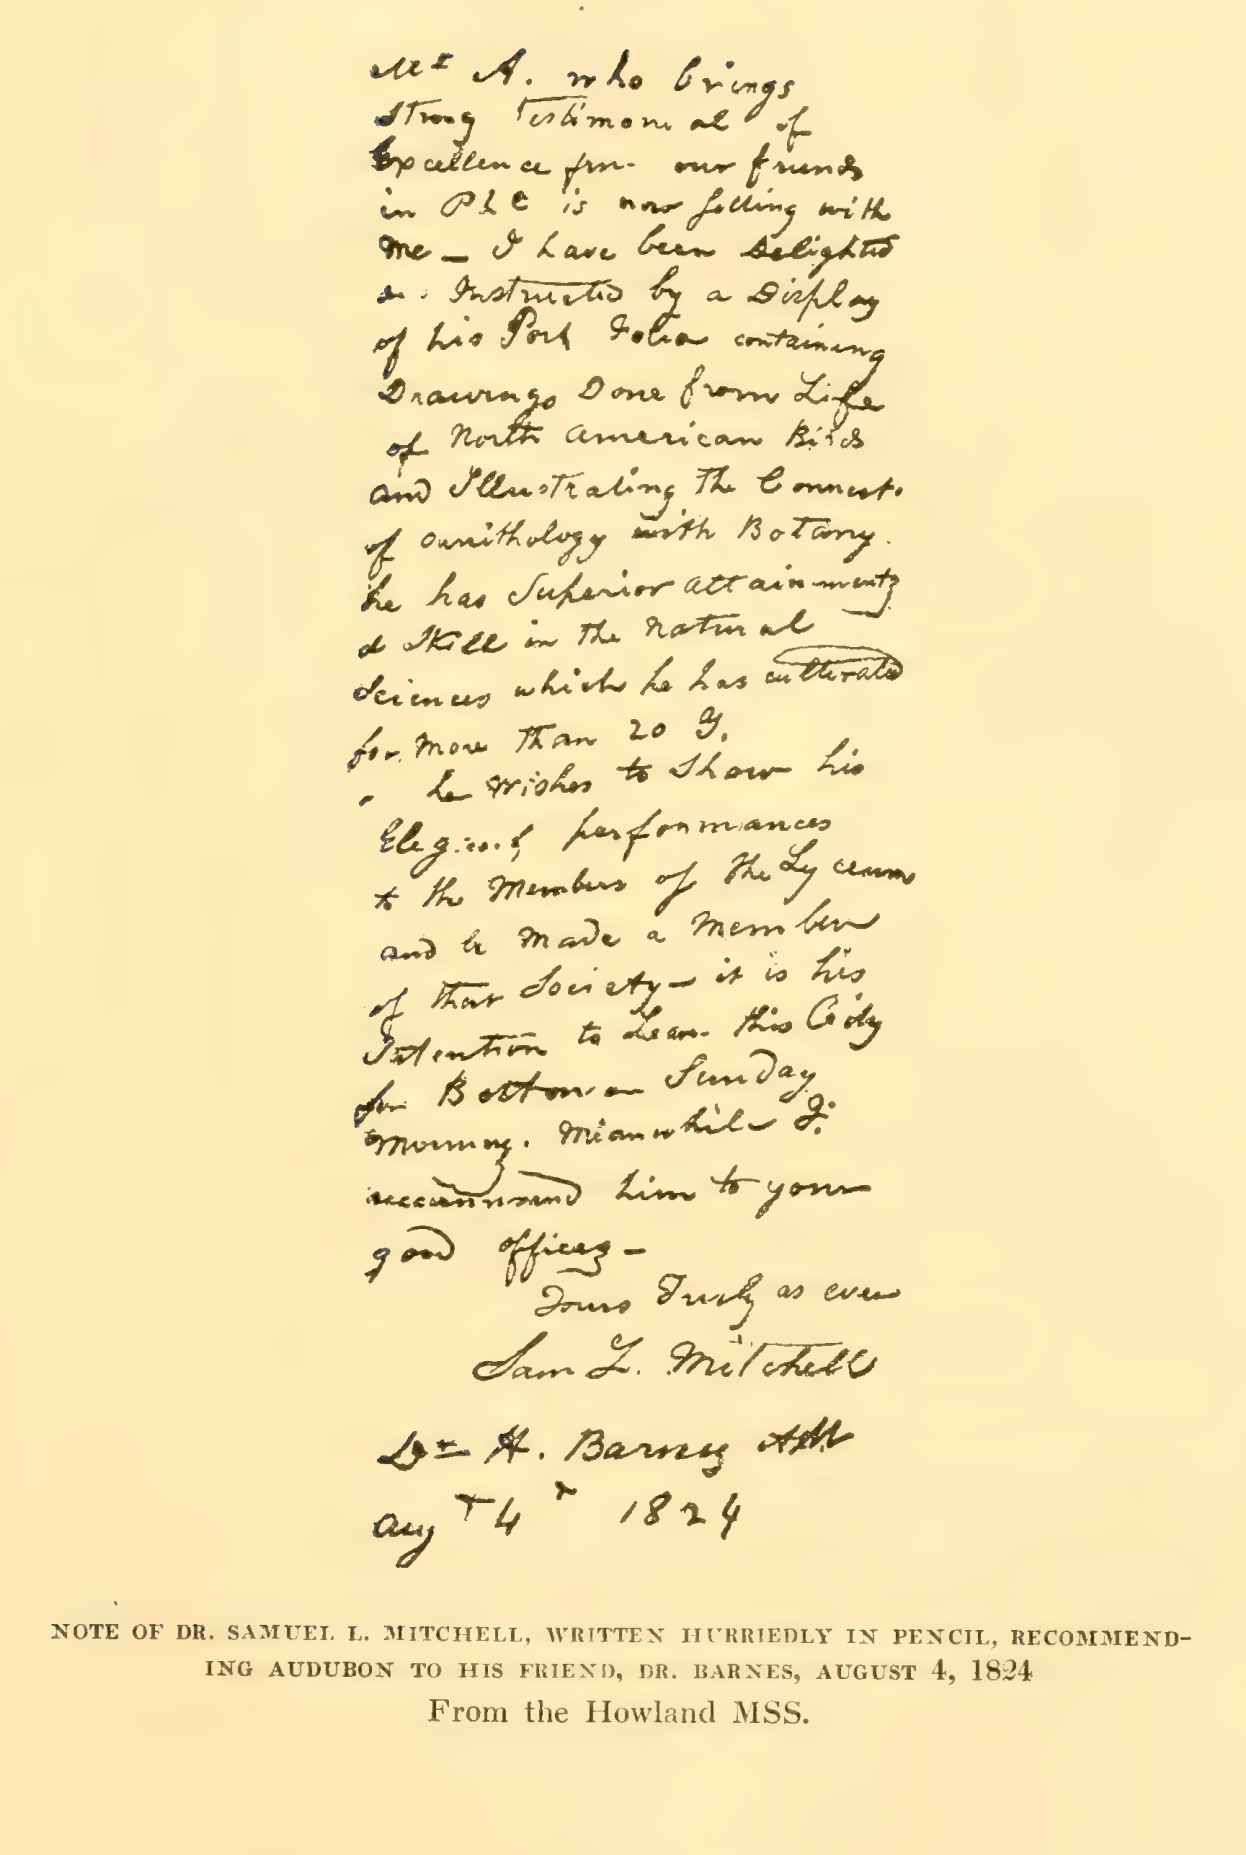 Mr A. who brings
Strong Testimonial of
Excellence fm. our friends
in Pha is now sitting with
me — I have been Delighted
& Instructed by a Display
of his Port Folio containing
Drawings Done from Life
of North American Birds
and Illustrating The Connect.
of ornithology with Botany.
he has Superior attainments
& Skill in the Natural
Sciences which he has cultivated
for more than 20 Y.
he wishes to Show his
performances
to the Members of the Lyceum
and be made a Member
of that Society — it is his
Intention to Leave this City
for Boston on Sunday
Morning. Meanwhile I
recommend him to your
good offices —
Yours Truly as ever
Sam L. Mitchell
Dr H. Barnes AM
Augt 4 1824
NOTE OF DR. SAMUEL L. MITCHELL, WRITTEN HURRIEDLY IN PENCIL, RECOMMEND-
ING AUDUBON TO HIS FRIEND, DR. BARNES, AUGUST 4, 1824
From the Howland MSS.